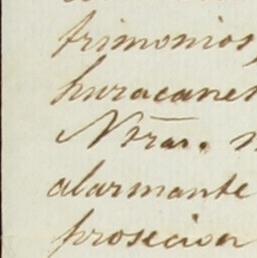 trimonios,
huracanes
Ntra.
alarmante
prosecion